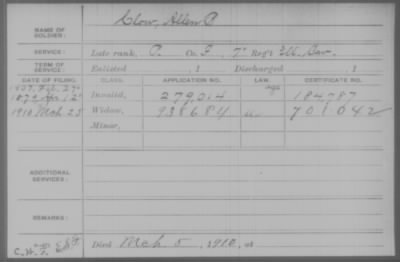 NAME OF SOLDIER: Clow, Allen P
SERVICE: Late rank, P. Co. F, 7" Reg't Ill. Cav.
TERM OF SERVICE: Enlisted , 1 Discharged , 1
DATE OF FILING. CLASS. APPLICATION NO. LAW. CERTIFICATE NO.
1907, Feb. 27"
age
1879 Apr 12" Invalid, 279,014 184787
1910 Mch 25 Widow, 938684 701042
Minor,
ADDITIONAL SERVICES:
REMARKS:
Died Mch 5, 1910, at